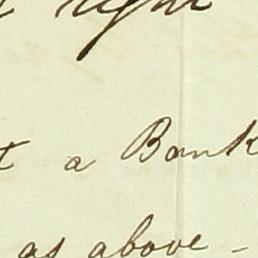 right
a Bank
as above -